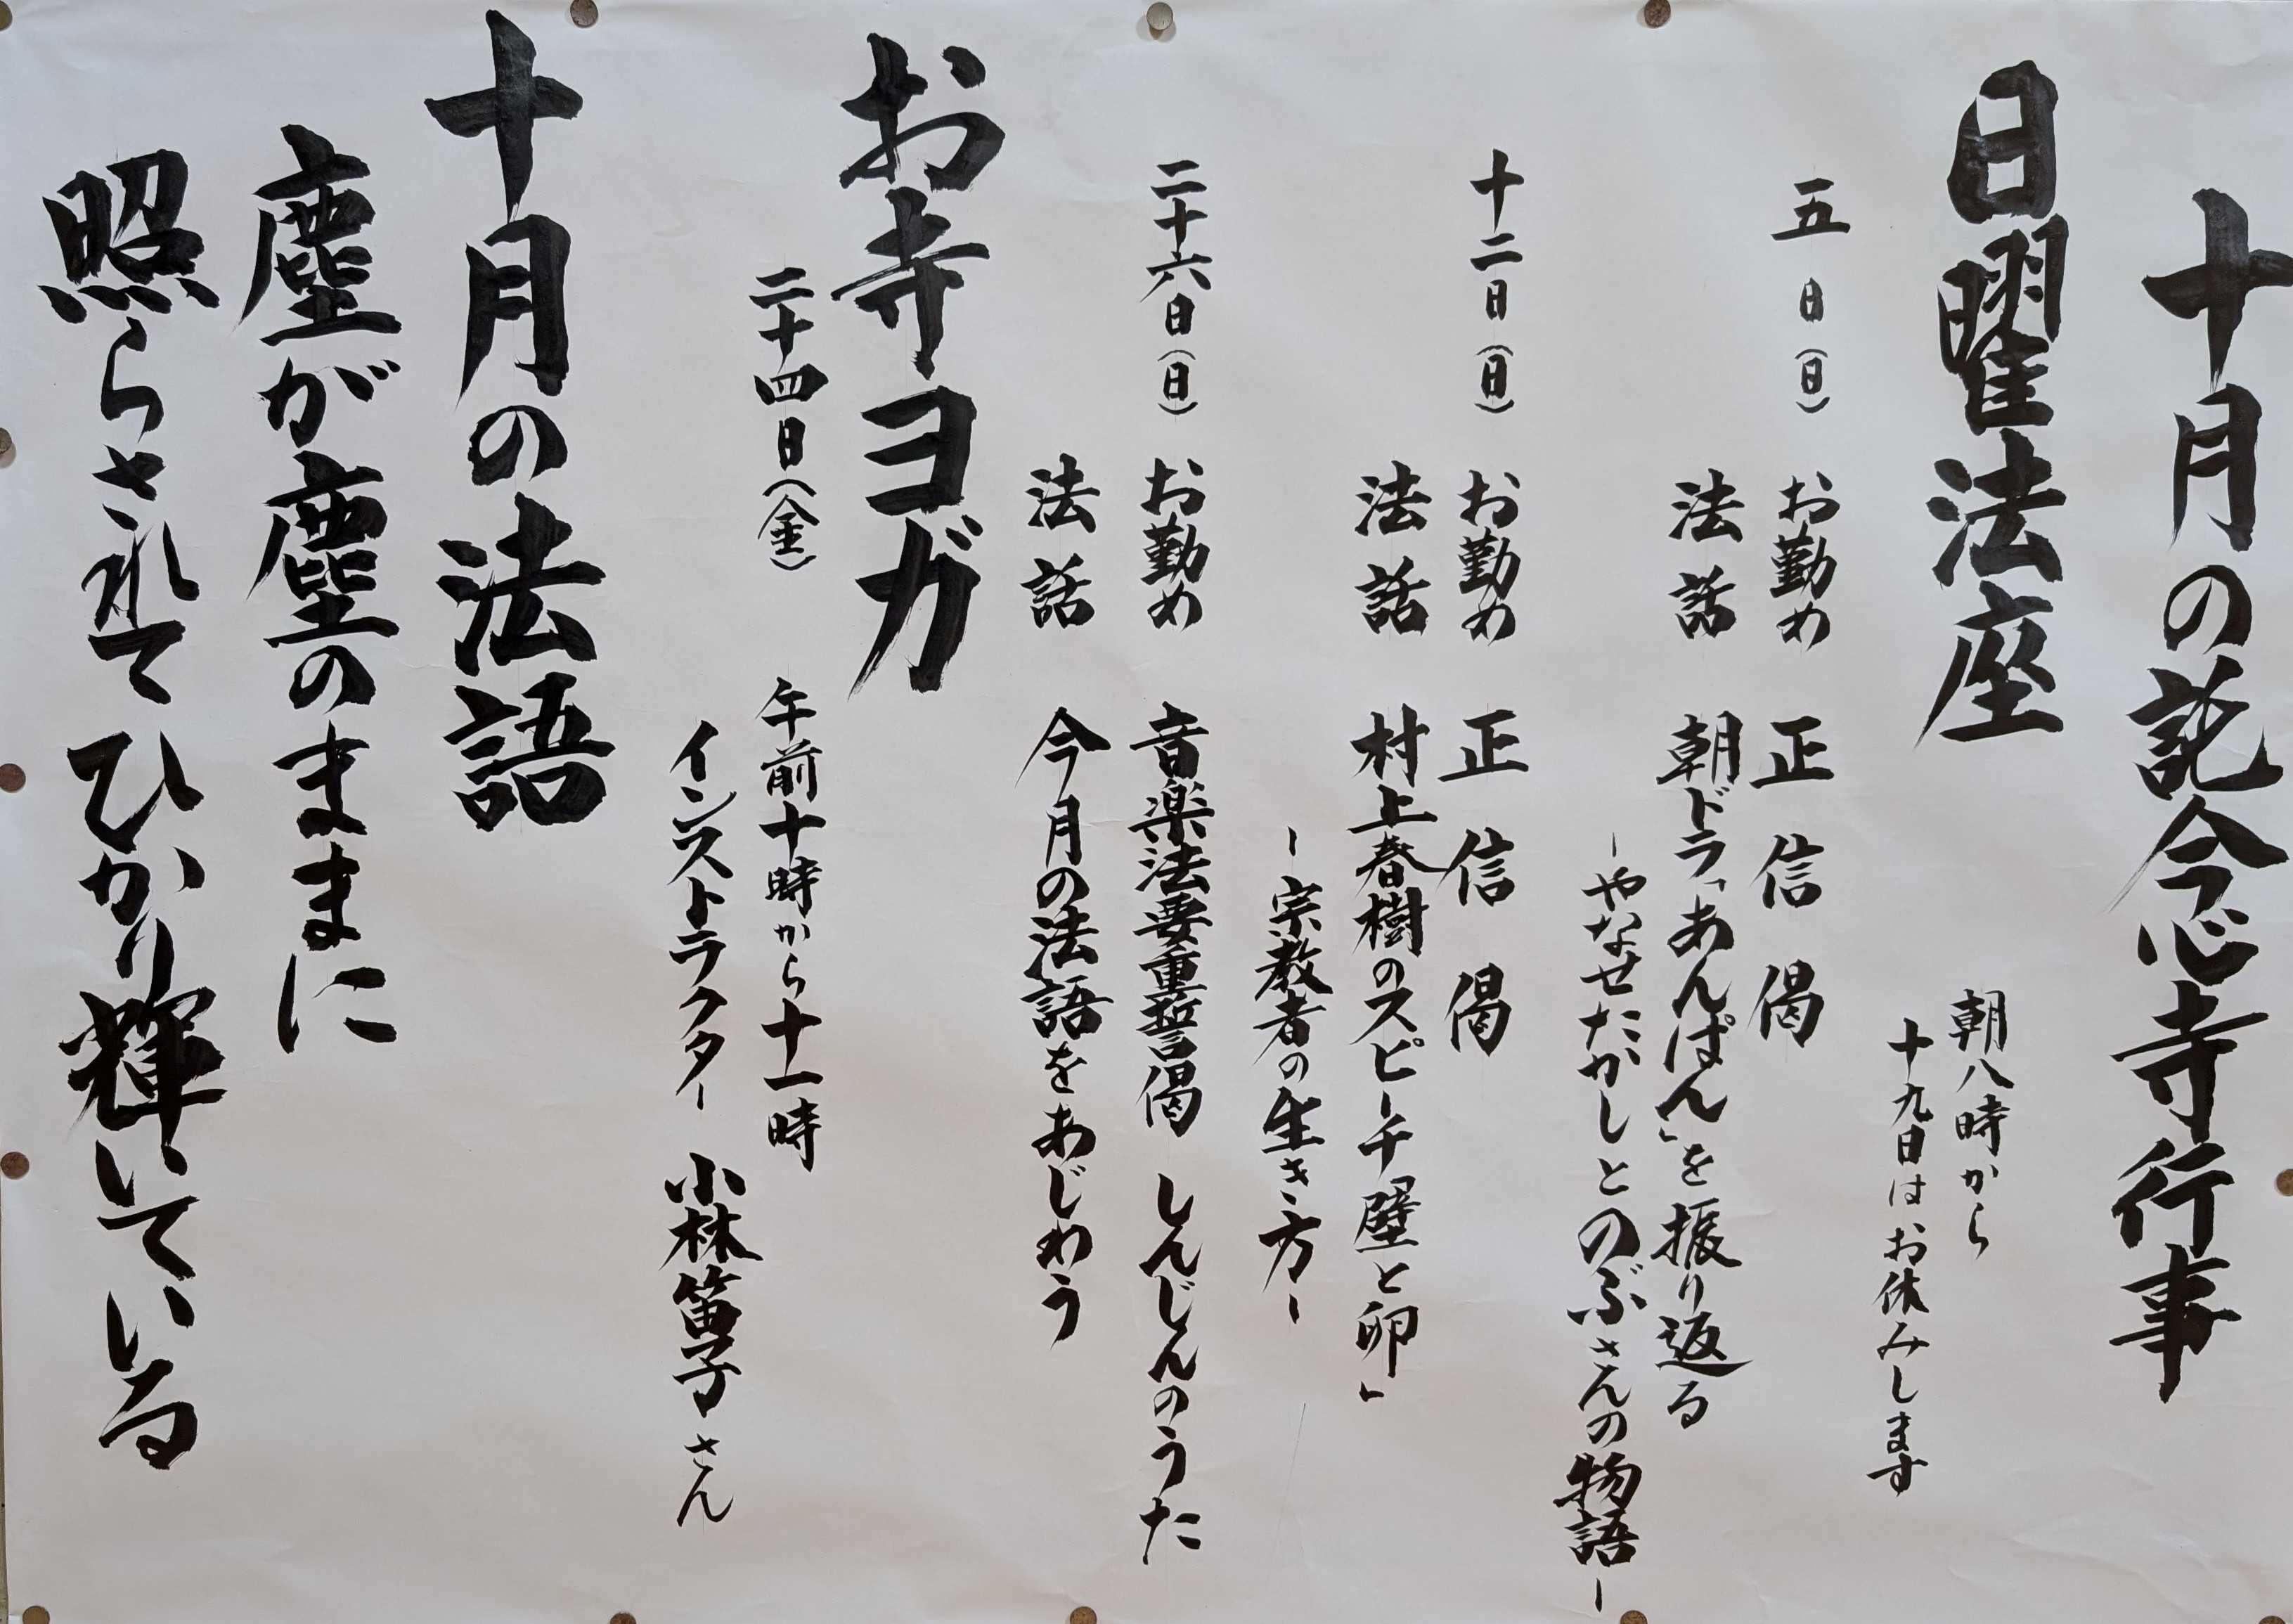 十月の託念寺行事
日曜法座
朝八時から
十九日はお休みします
五日(日)
お勤め 正信偈
法話 朝ドラ「あんぱん」を振り返る
ーやなせたかしとのぶさんの物語ー
十二日(日)
お勤め 正信偈
法話 村上春樹のスピーチ「壁と卵」
ー宗教者の生き方ー
二十六日(日)
お勤め 音楽法要重誓偈 しんじんのうた
法話 今月の法語をあじわう
お寺ヨガ
二十四日(金) 午前十時から十一時
インストラクター 小林笛子さん
十月の法語
塵が塵のままに
照らされてひかり輝いている